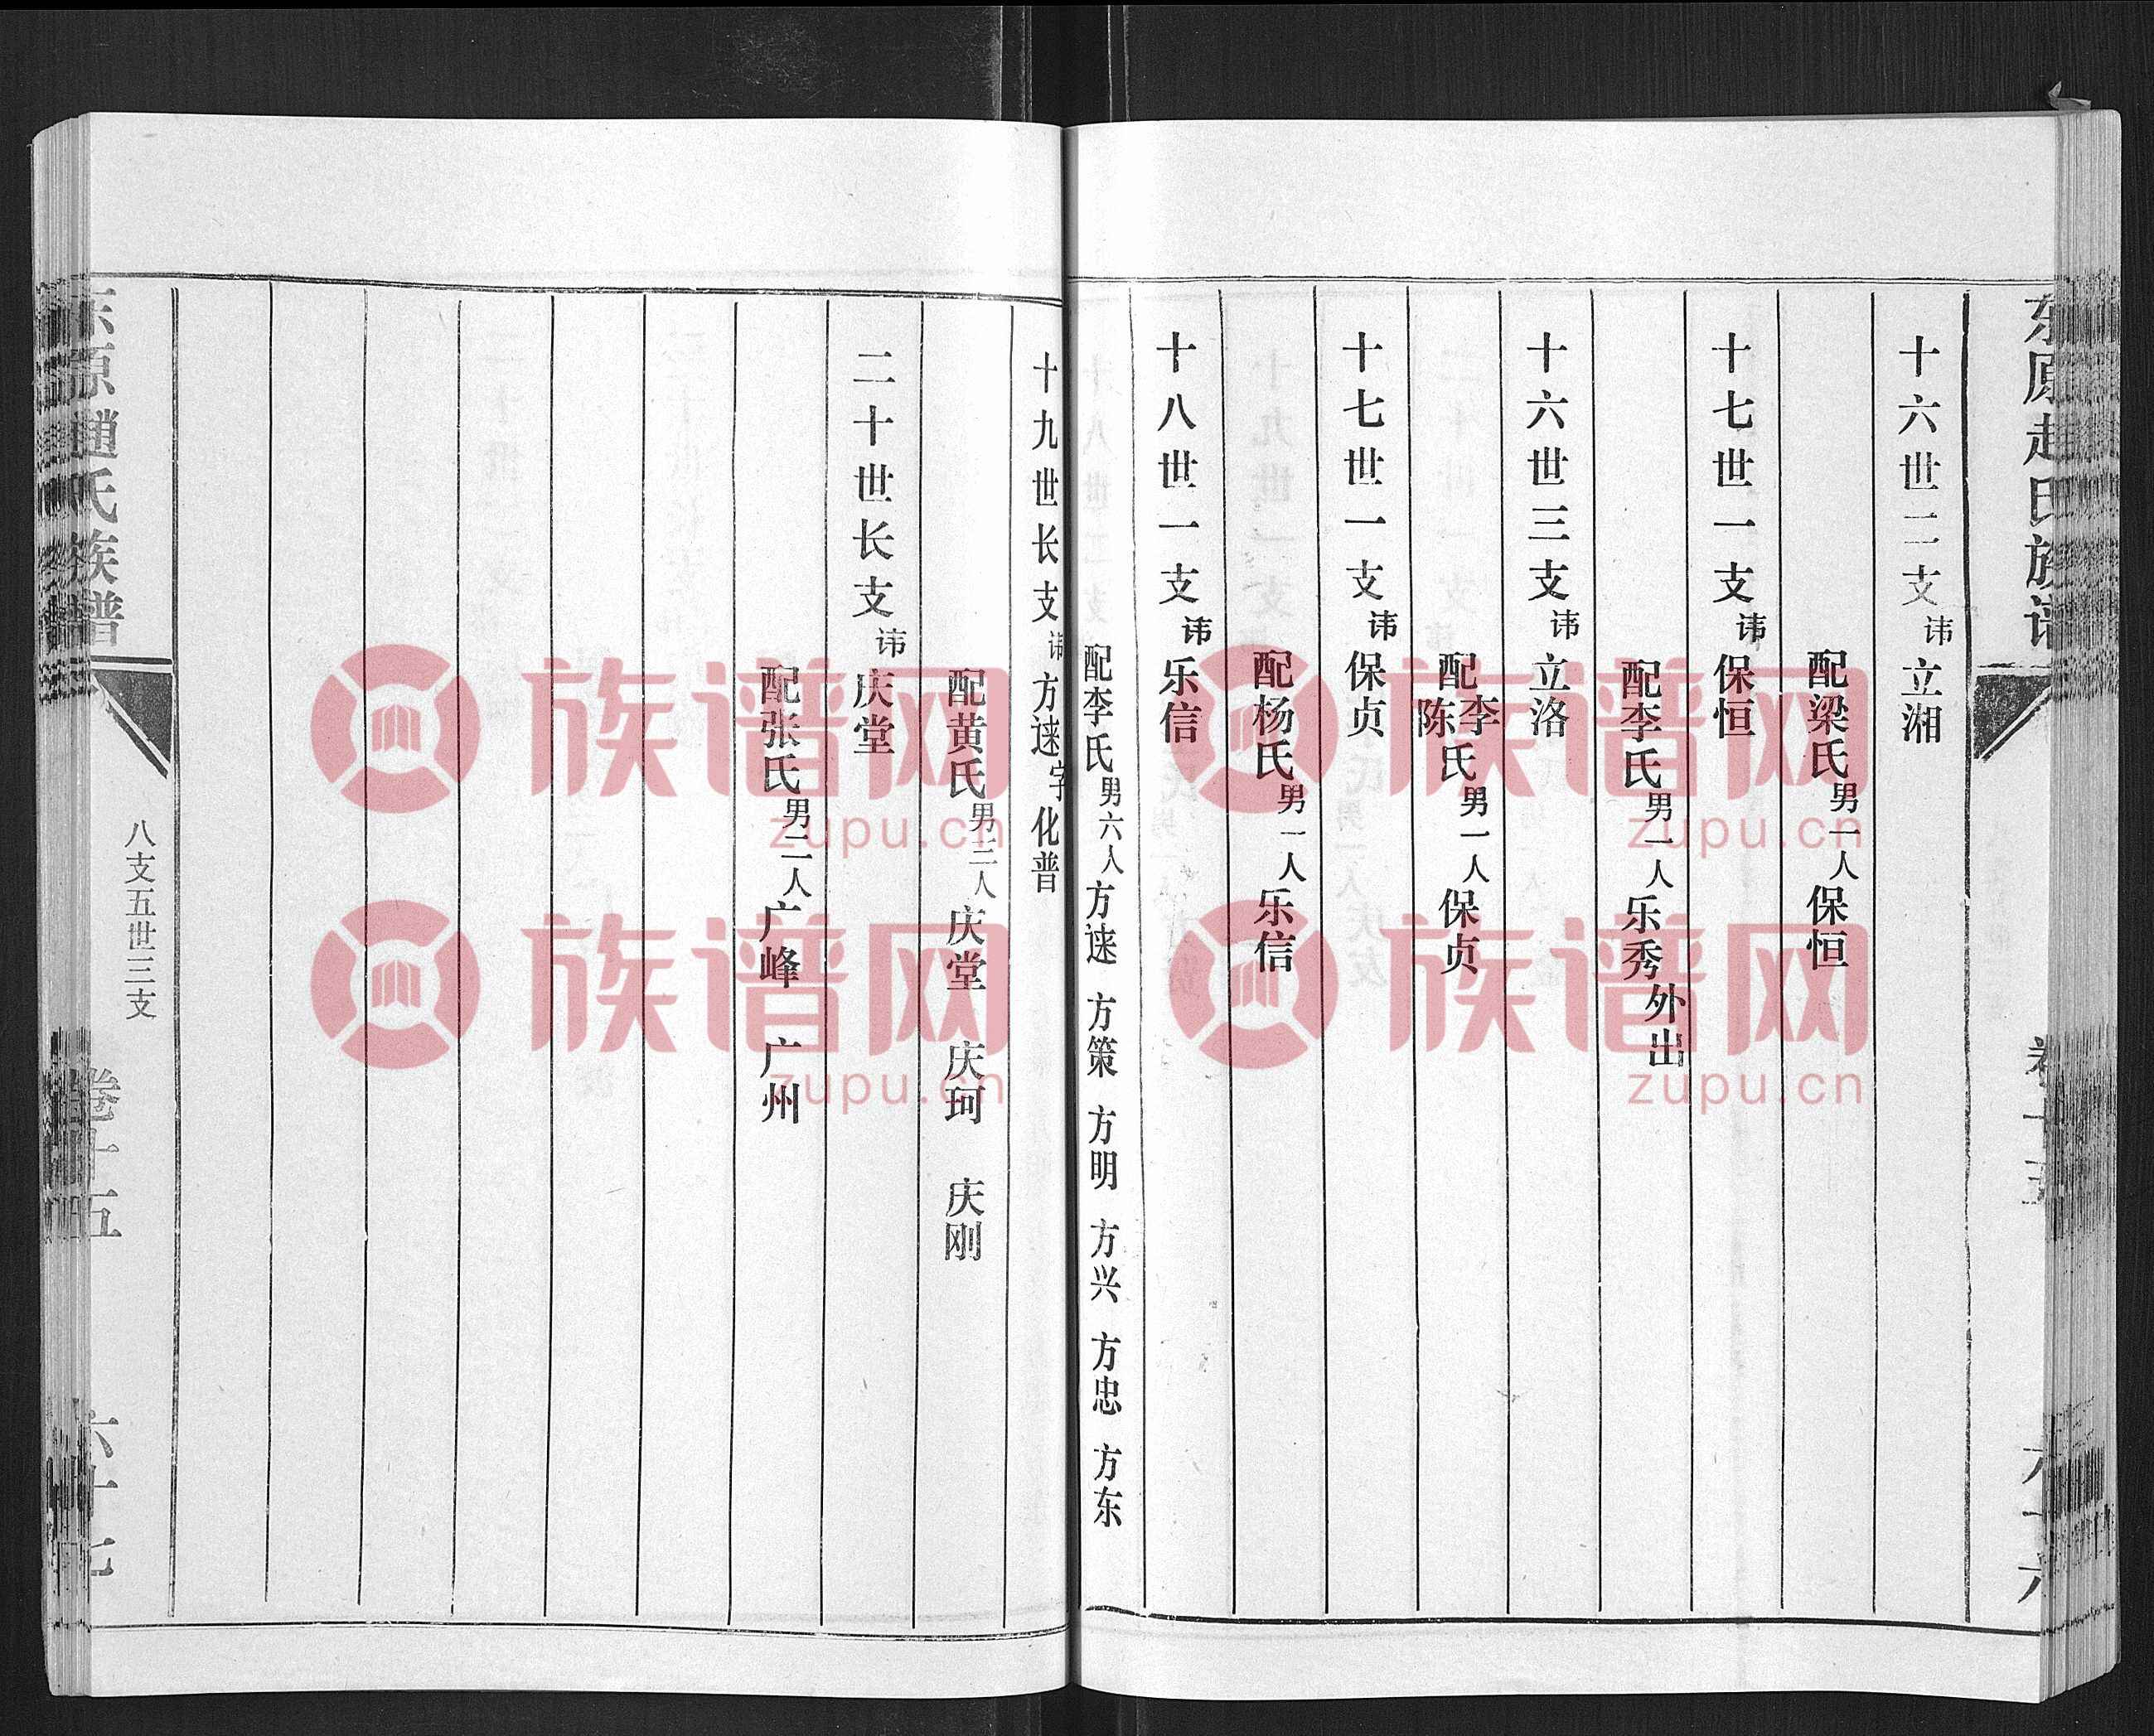 东原赵氏族谱
卷十五
六十六
十六世二支讳立湘
配梁氏男一人保恒
十七世一支讳保恒
配李氏男一人乐秀外出
十六世三支讳立洛
配李陈氏男一人保贞
十七世一支讳保贞
配杨氏男一人乐信
十八世一支讳乐信
配李氏男六人方速 方策 方明 方兴 方忠 方东
十九世长支讳方速字化普
配黄氏男三人庆堂 庆珂 庆刚
二十世长支讳庆堂
配张氏男二人广峰 广州
八支五世三支
东原赵氏族谱
卷十五
六十七
族谱网
zupu.cn
族谱网
zupu.cn
族谱网
zupu.cn
族谱网
zupu.cn